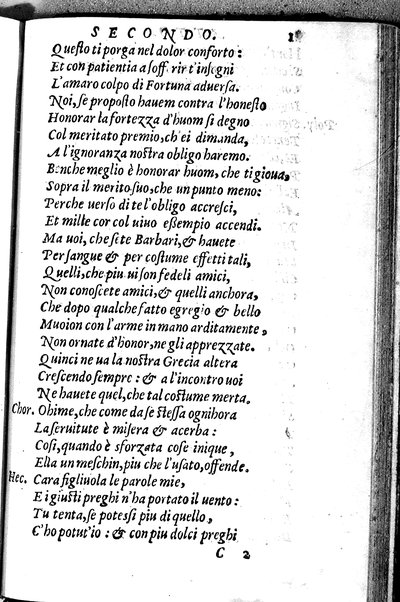 SECONDO.
Questo ti porga nel dolor conforto:
Et con patientia a soff rir t'insegni
L'amaro colpo di Fortuna adversa.
Noi, se proposto havem contra l'honesto
Honorar la fortezza d'huom si degno
Col meritato premio, ch'ei dimanda,
A l'ignoranza nostra obligo haremo.
Benche meglio è honorar huom, che ti gioua,
Sopra il merito suo, che un punto meno:
Perche uerso di te l'obligo accresci,
Et mille cor col uiuo essempio accendi.
Ma uoi, che sete Barbari, & hauete
Per sangue & per costume effetti tali,
Quelli, che piu ui son fedeli amici,
Non conoscete amici, & quelli anchora,
Che dopo qualche fatto egregio & bello
Muoion con l'arme in mano arditamente,
Non ornate d'honor, ne gli apprezzate.
Quinci ne ua la nostra Grecia altera
Crescendo sempre: & a l'incontro uoi
Ne hauete quel, che tal costume merta.
Chor. Ohime, che come da se stessa ognihora
La seruitute è misera & acerba:
Cosi, quando è sforzata cose inique,
Ella un meschin, piu che l'usato, offende.
Hec. Cara figliuola le parole mie,
E i giusti preghi n'ha portato il uento:
Tu tenta, se potessi piu di quello,
C'ho potut'io: & con piu dolci preghi
C 2